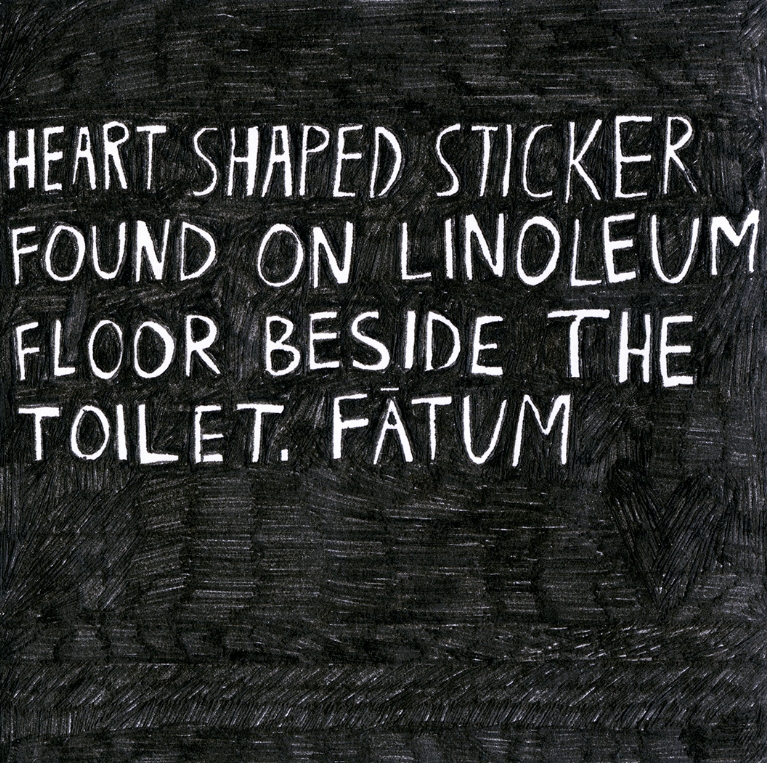 HEART SHAPED STICKER
FOUND ON LINOLEUM
FLOOR BESIDE THE
TOILET. FĀTUM